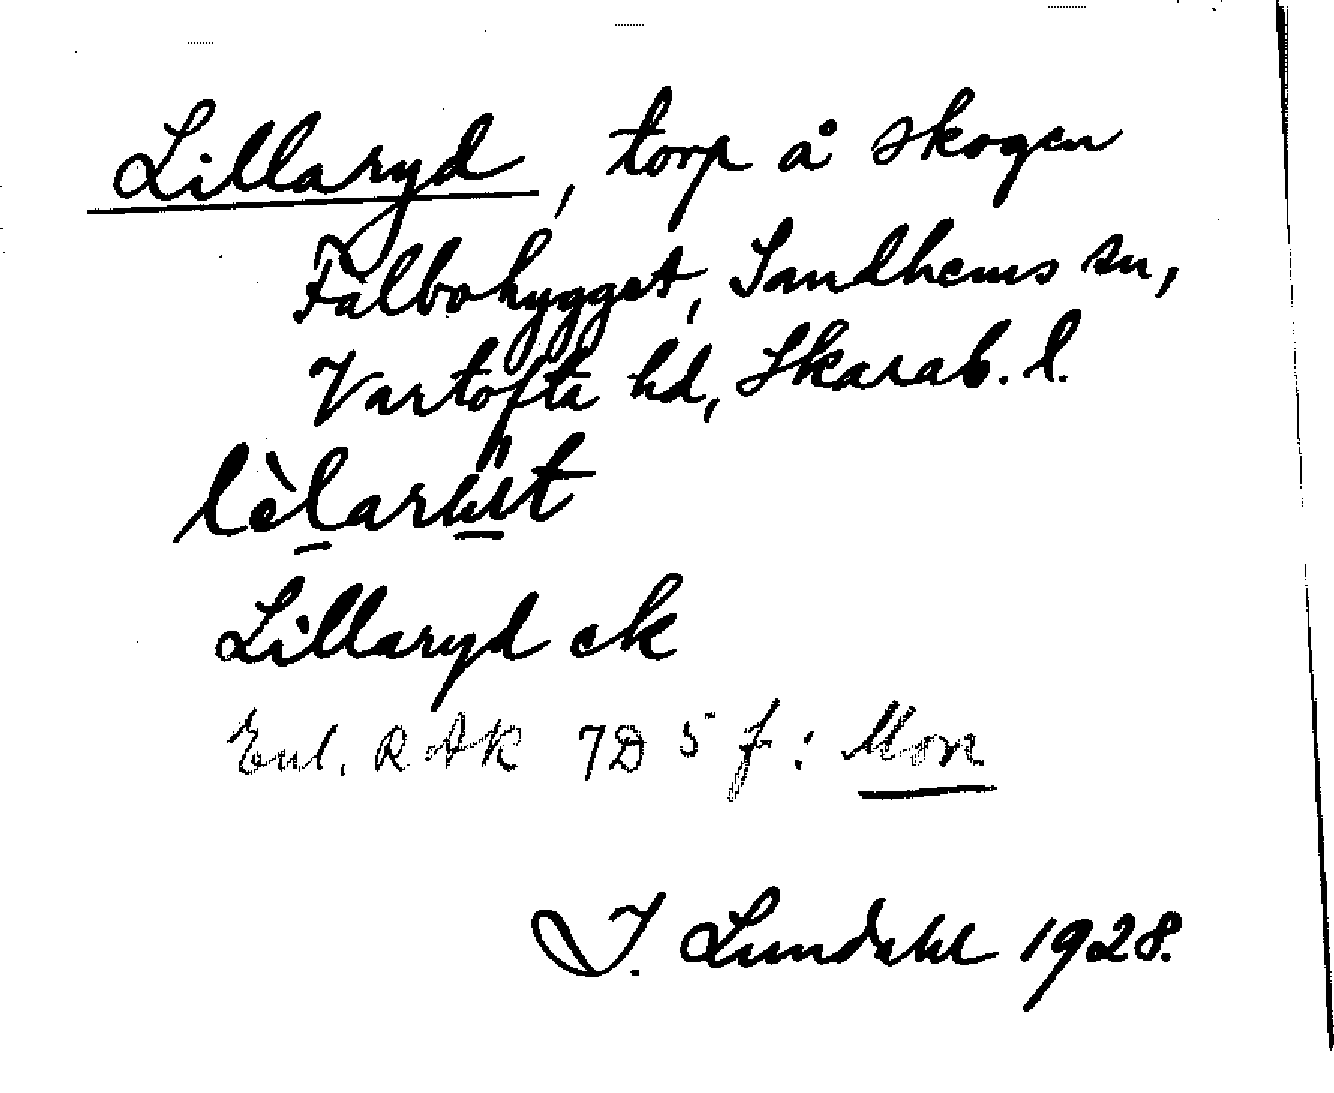 Lillaryd, torp å skogen
Falbohygget, Sandhems sn,
Vartofta hd, Skarab. l.
Lillaryd ek
Enl. RAK 7D 5 f: Mon
I. Lundahl 1928.